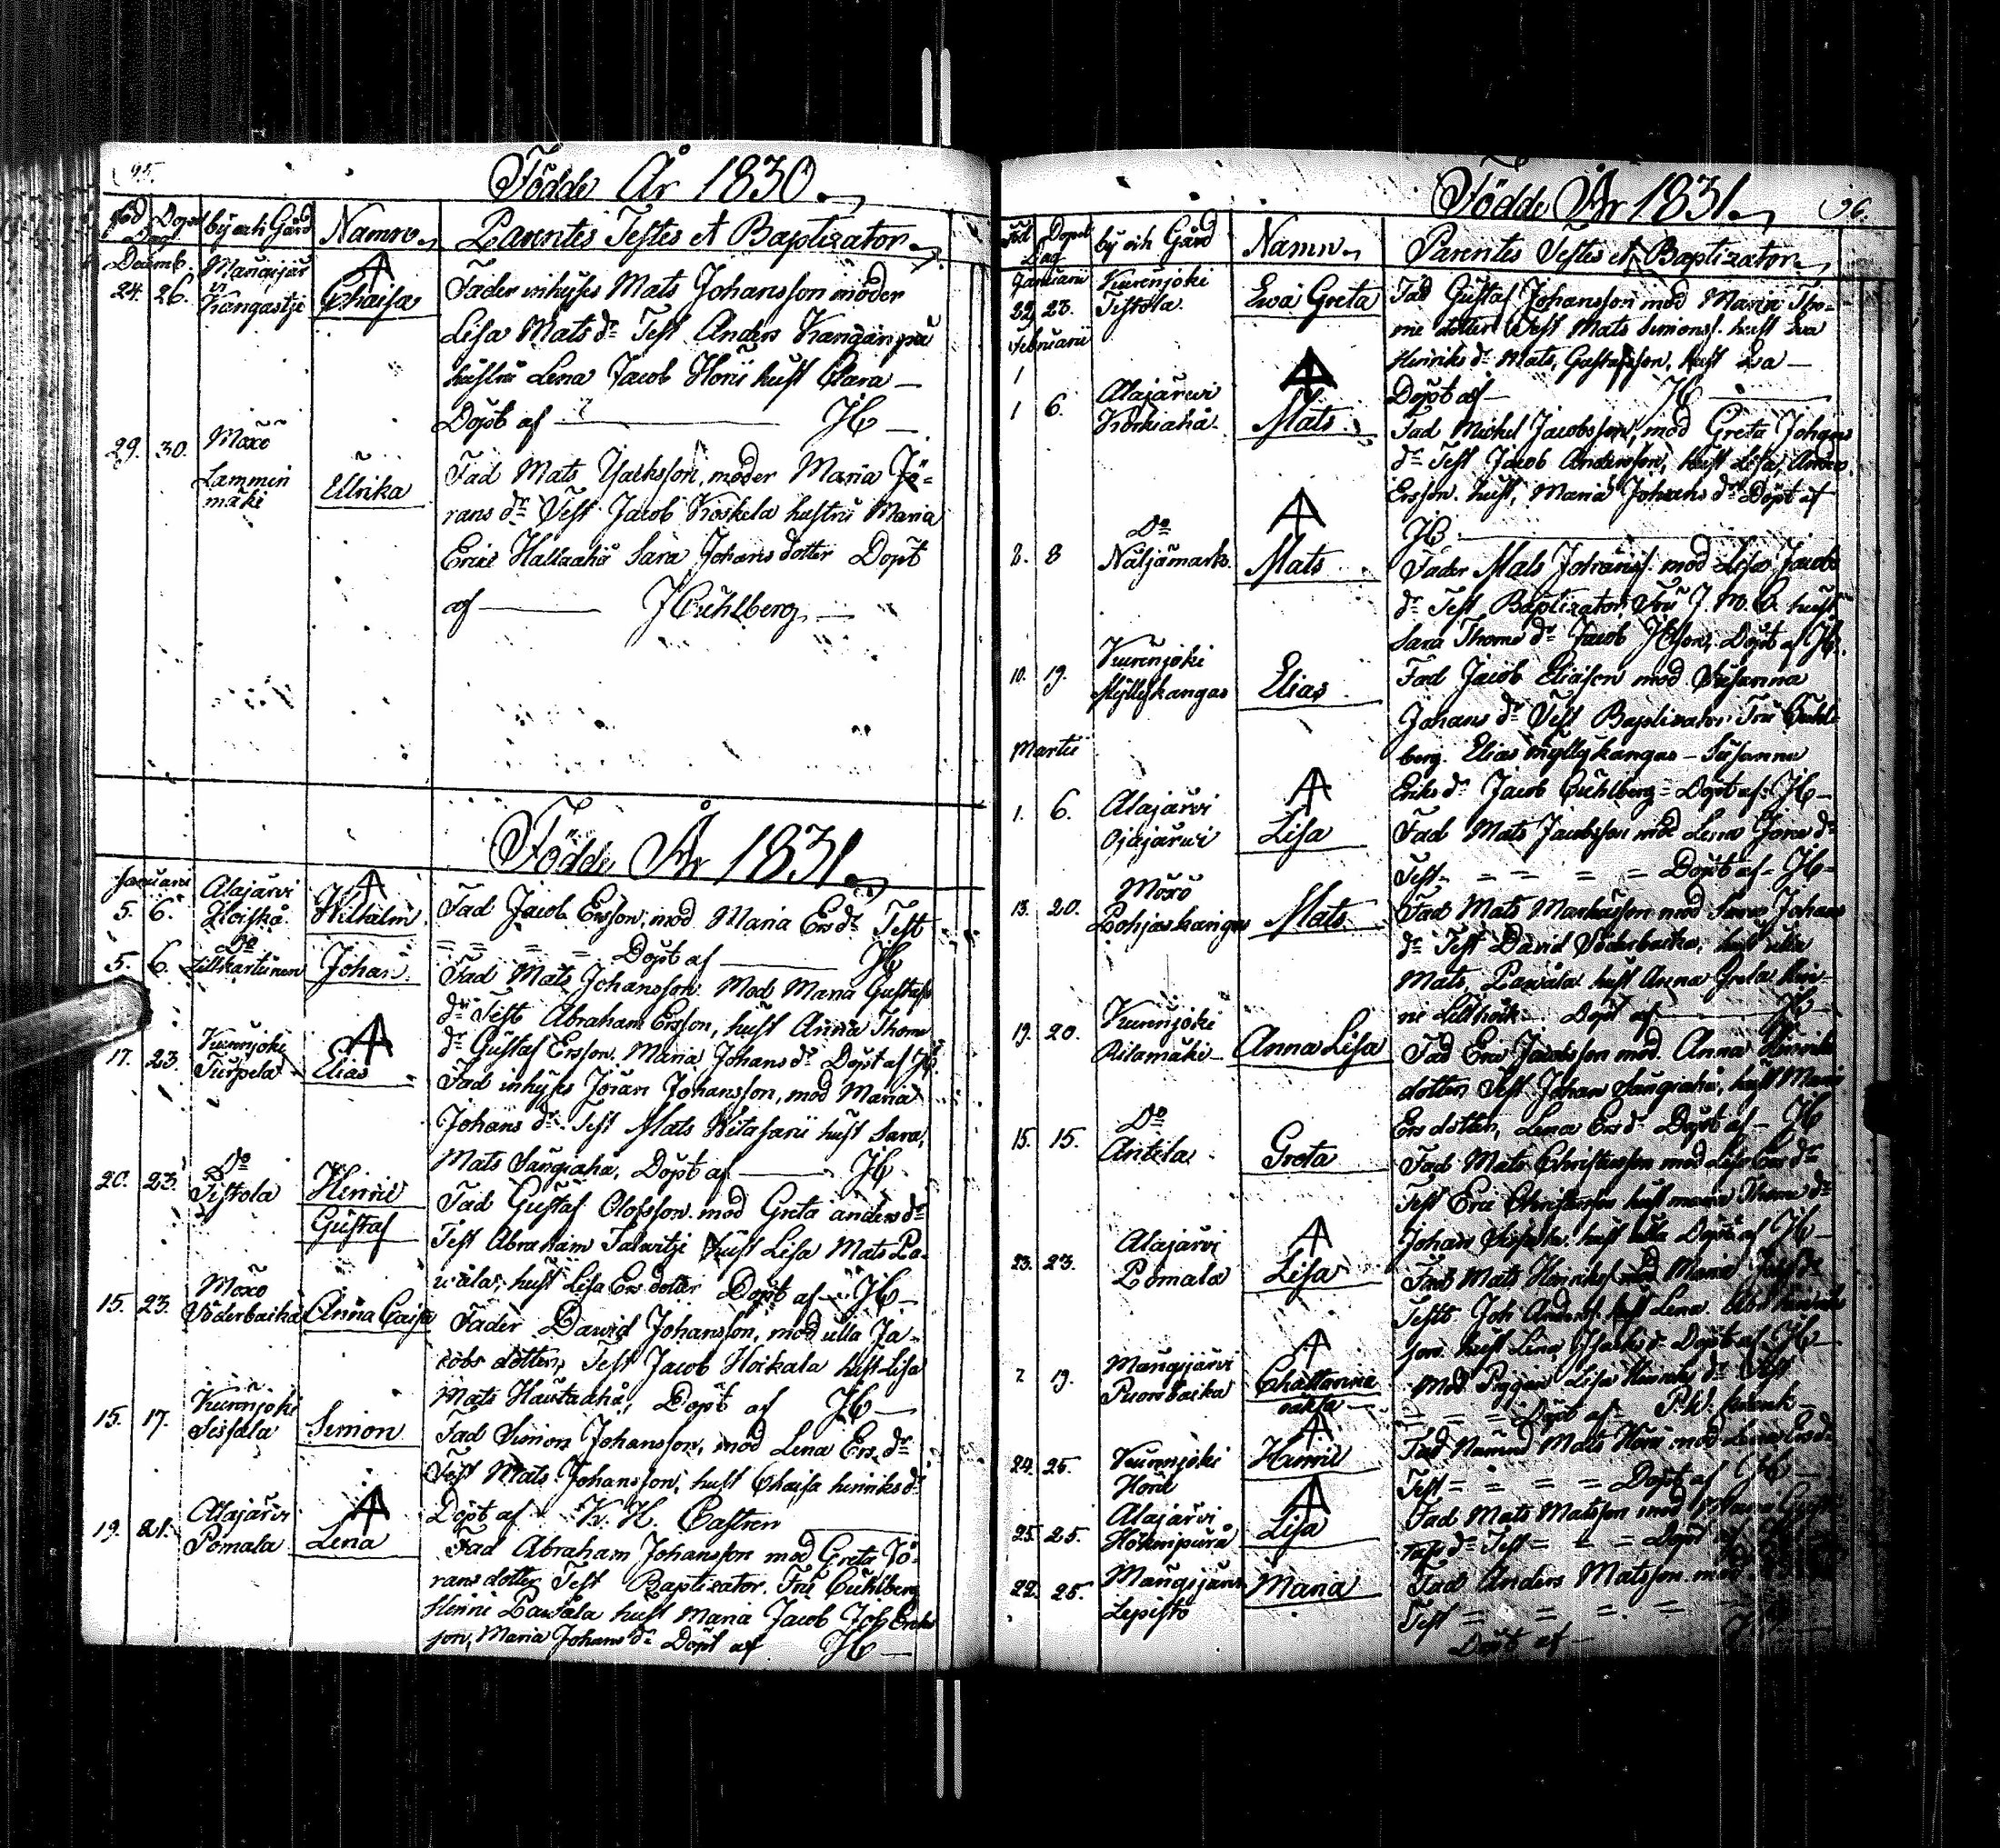 95.
Födde År 1830.
Föd Döpel Dag
by och Gård
Namn
Parentes Testes et Baptizator
Decemb.
24. 26.
Kangastje
Chaisa
Fader inhyses Mats Johansson moder
Lisa Mats dr Test Anders Kangänpää
hustru Lena Jacob Horii hust Clara —
Döpt af — JC —
29. 30.
Möxö
Lammin
mäki
Ullrika
Fad Mats Isacksson, moder Maria Jö-
rans dr Test Jacob Koskela hustru Maria
Eric Hallaaho Sara Johans dotter Döpt
af — J Cuhlberg —
Födde År 1831.
Januari
5. 6.
Alajärvi
Hoiskå
Wilhelm
Fad Jacob Ersson, mod Maria Ers dr Test
= = = = Döpt af — JC
5. 6.
Do
Johan
Fad Mats Johansson Mod Maria Gustafs
dr Test Abraham Ersson, hust Anna Thome
dr Gustaf Ersson, Maria Johans dr Döpt af JC
17. 23.
Kurenjoki
Turpela
Elias
Fad inhyses Jöran Johansson, mod Maria
Johans dr Test Mats Witasarii hust Sara,
Mats Saugraho, Döpt af — JC
20. 23.
Do
Tistola
Henric
Gustaf
Fad Gustaf Olofsson mod Greta anders dr
Test Abraham Salwitje hust Lisa Mats Pa-
wala, hust Lisa Ers dotter Döpt af — JC —
15. 23.
Möxö
Söderbacka
Anna Caisa
Fader David Johansson, mod ulla Ja-
cobs dotter, Test Jacob Hoikala hust Lisa
Mats Hautaaho, Döpt af JC —
15. 17.
Kurenjoki
Sissala
Simon
Fad Simon Johansson, mod Lena Ers dr
Test Mats Johansson, hust Chaisa hinriks dr
Döpt af K. H. Castren
19. 21.
Alajärvi
Pomala
Lena
Fad Abraham Johansson mod Greta Jö-
rans dotter Test Baptizator Fru Cuhlberg
Henric Pawala hust Maria Jacob Joh Eriks
son, Maria Johans dr Döpt af JC —
96.
Födde År 1831.
Föd Döpel Dag
by och Gård
Namn
Parentes Testes et Baptizator
Januari
22. 23.
Kurenjoki
Tistola
Ewa Greta
Fad Gustaf Johansson mod Maria Tho-
me dotter Test Mats Simonss. hust Ewa
Hinriks dr Mats Gustafsson, hust Ewa —
Döpt af — JC —
Februarii
1
1 6.
Alajärwi
Mats
Fad Michel Jacobsson, mod Greta Johans
dr Test Jacob Andersson, hust Lisa, Anders
Ersson hust, Maria Johans dr Döpt af
JC
2. 8
Do
Näljämark
Mats
Fader Mats Johanss. mod Lisa Jacobs
dr Test Baptizator, Fru J. M. C. hust
Sara Thome dr Jacob Döpt af JC
10. 19.
Kurenjoki
Myllykangas
Elias
Fad Jacob Eliason mod Susanna
Johans dr Test Baptizator Fru Cuhl-
berg. Elias Myllykangas — Susanna
Eriks dr Jacob Cuhlberg = Döpt af JC —
Martii
1. 6.
Alajärvi
Ojajärwi
Lisa
Fad Mats Jacobsson mod Lena Jona dr
Test = = = = Döpt af JC
13. 20.
Möxö
Pohjaskangas
Mats
Fad Mats mod Johans
dr Test David Söderbacka, hust ulla
Mats Pawala hust Anna Greta Hen-
ric Döpt af JC
19. 20.
Kurenjoki
Rilamäki
Anna Lisa
Fad Eric Jacobsson mod Anna Henriks
dotter Test Johan Saugraho, hust Maria
Ers dotter, Lena Ers dr Döpt af — JC
15. 15.
Do
Antila
Greta
Fad Mats Christiansson mod Lisa Ers dr
Test Eric hust maria Thome dr
Johan hust ulla Döpt af JC —
23. 23.
Alajärvi
Pomala
Lisa
Fad Mats Henrikss mod Maria
Test Joh Anderss hust Lena
hust Lena Isacks dr Döpt af JC —
2 19.
Mangsjärvi
Puonbacka
Chattarina
oäkta
Mod Pigan Lisa Hinriks dr Test
= = = Döpt af P.W.
24. 25.
Kurenjoki
Horii
Henric
Fad Mats Horii mod Lena Ers dr
Test = = = = Döpt af JC
25. 25.
Alajärvi
Lisa
Fad Mats Matsson mod
dr Test = = = Döpt
22. 25.
Lepistö
Maria
Fad Anders Matsson mod
Test = = = =
Döpt af —